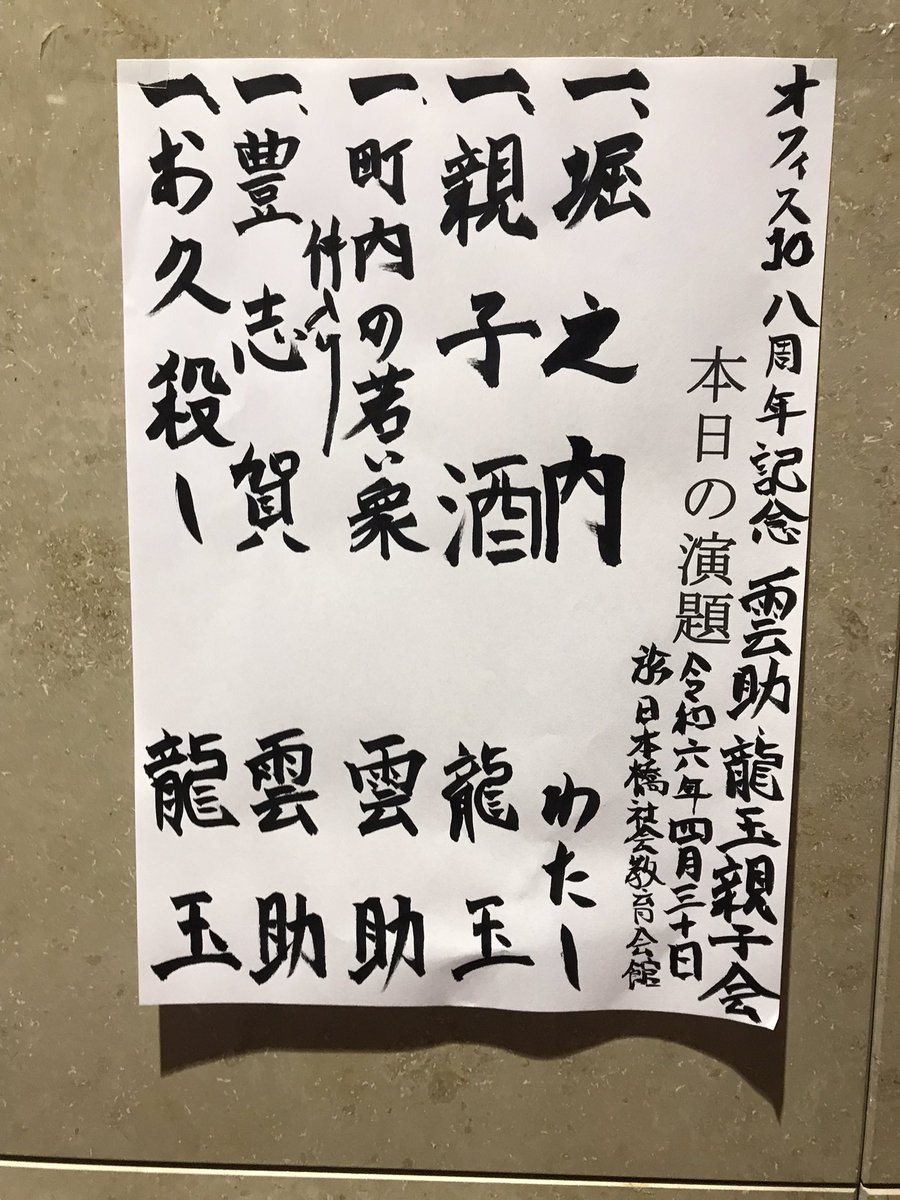 オフィス10 八周年記念 雲助、龍玉親子会
本日の演題
令和六年四月三十日
於 日本橋社会教育会館
一、堀之内 わたし
一、親子酒 龍玉
一、町内の若い衆 雲助
仲入り
一、豊志賀 雲助
一、お久殺し 龍玉